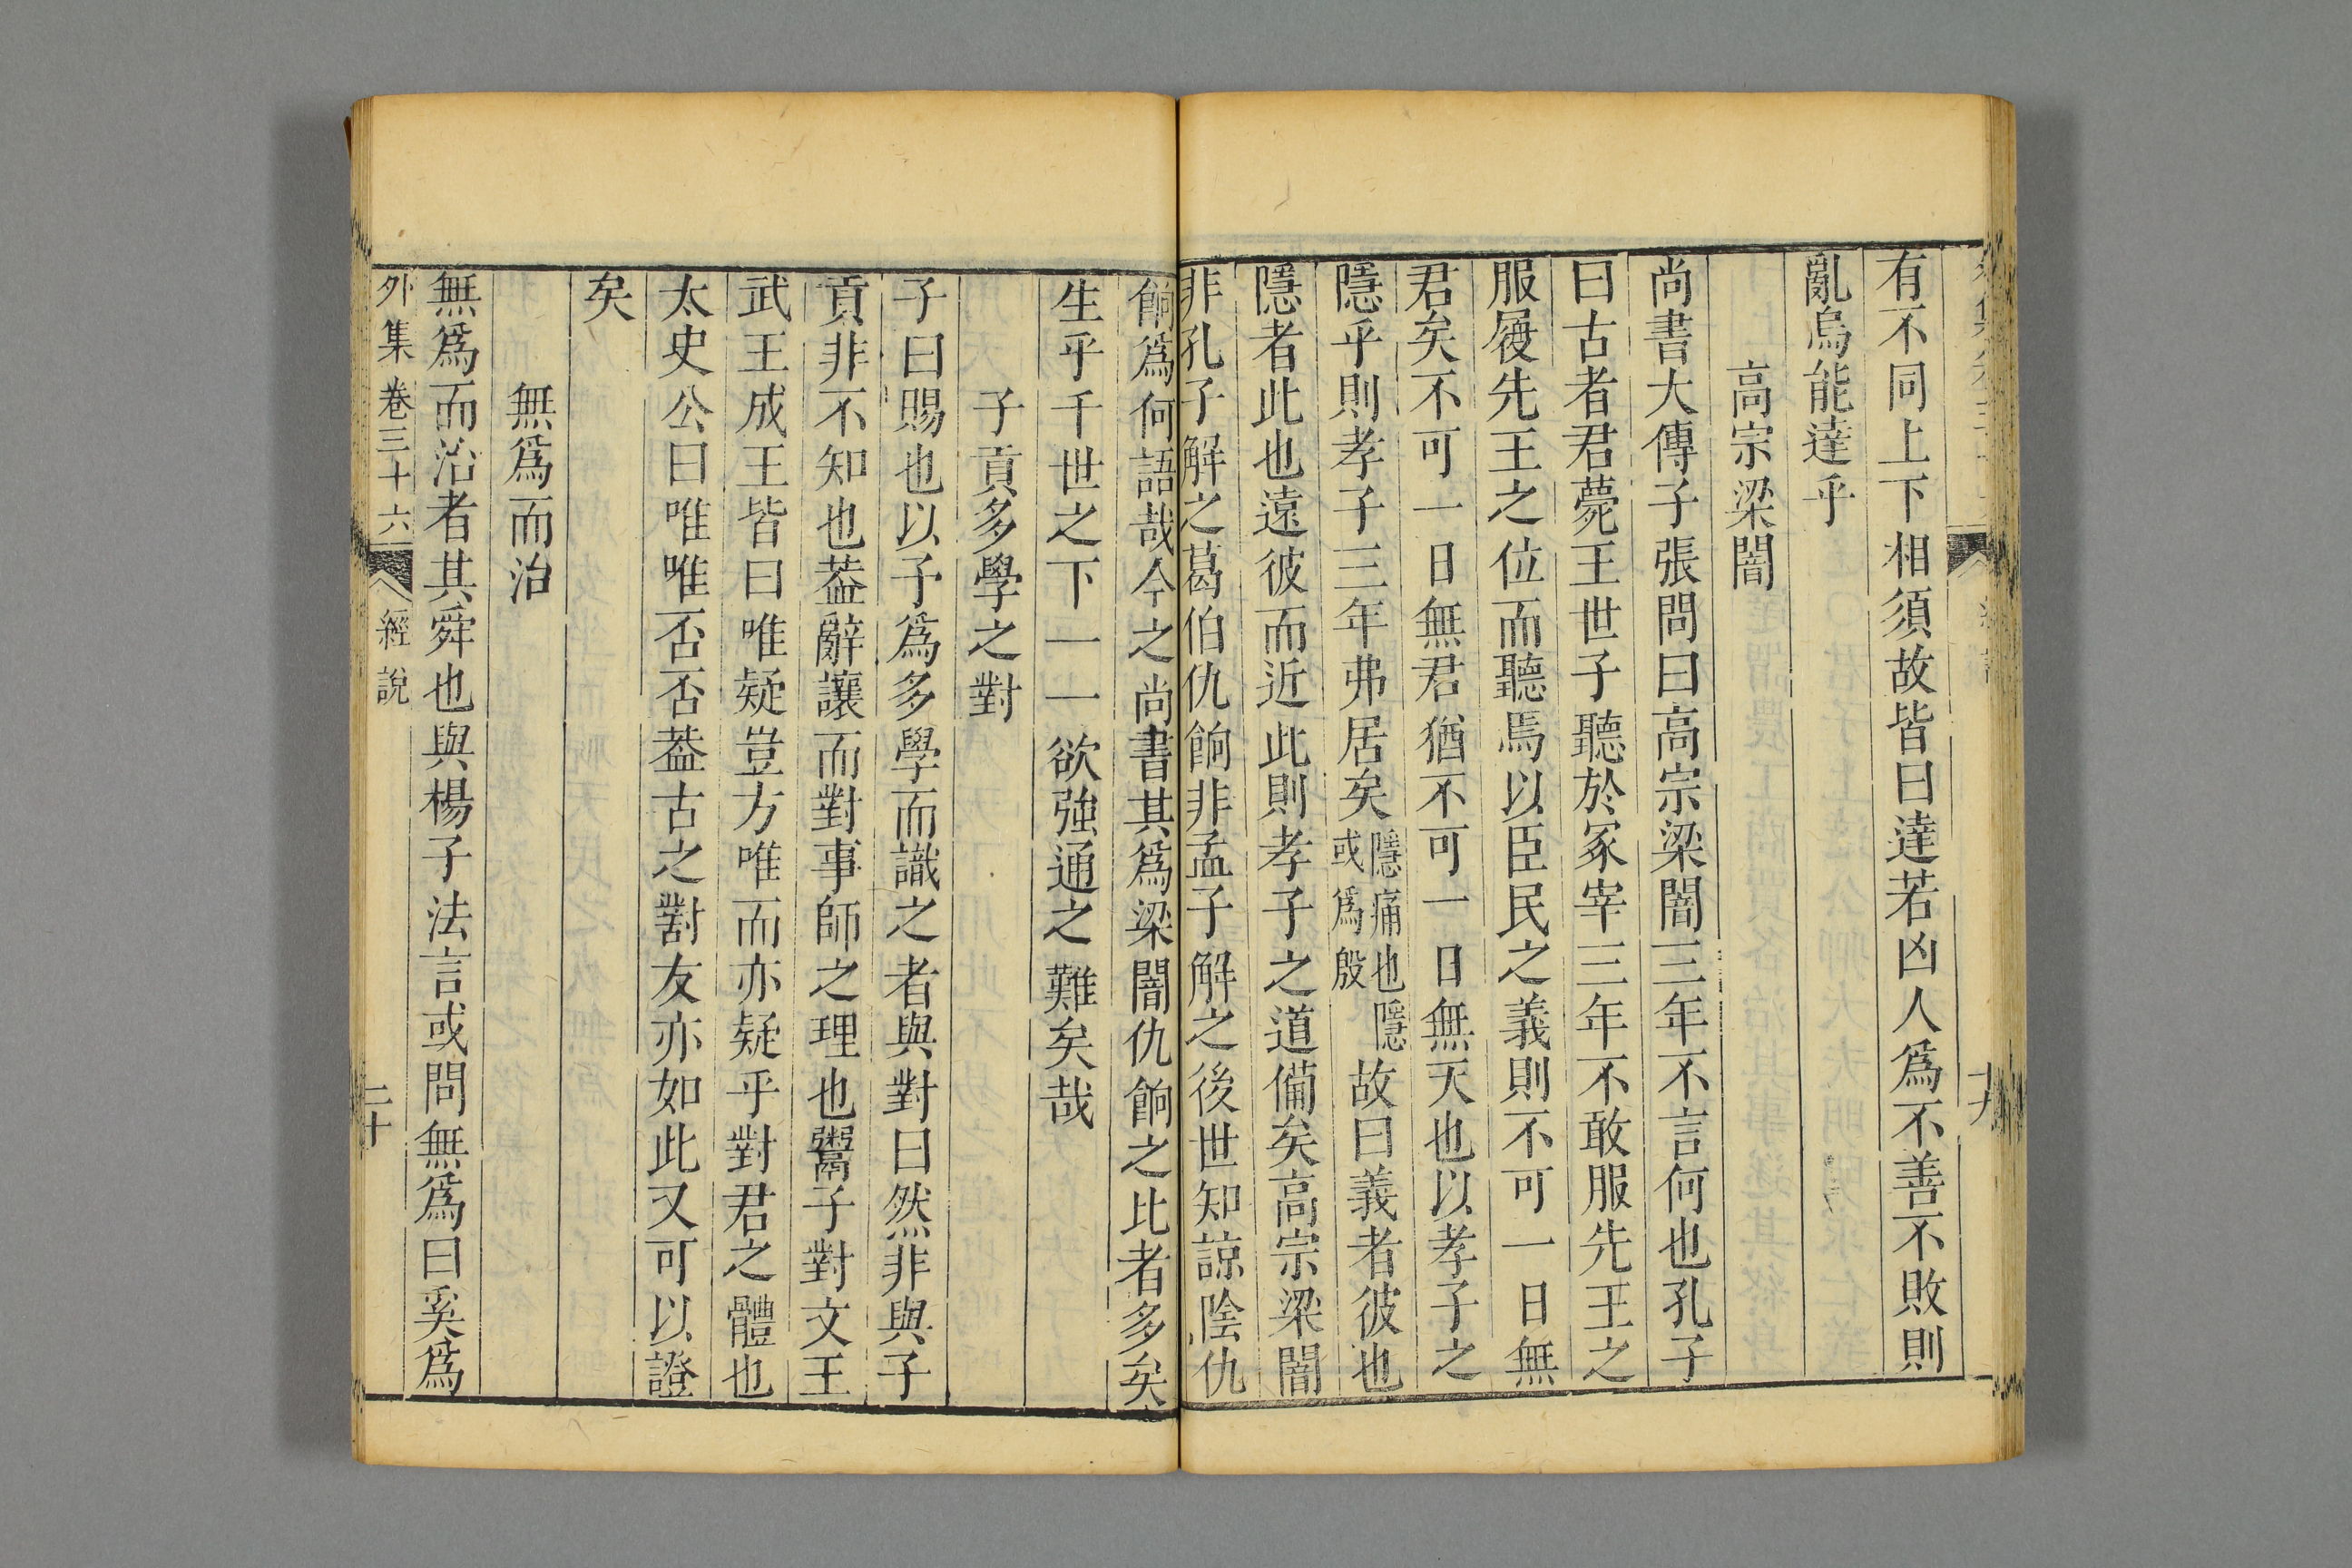 有不同上下相須故皆曰達若凶人爲不善不敗則
亂烏能達乎
高宗梁闇
尚書大傳子張問曰高宗梁闇三年不言何也孔子
曰古者君薨王世子聽於冢宰三年不敢服先王之
服履先王之位而聽焉以臣民之義則不可一日無
君矣不可一日無君猶不可一日無天也以孝子之
隱乎則孝子三年弗居矣隱痛也隱或爲殷故曰義者彼也
隱者此也遠彼而近此則孝子之道備矣高宗梁闇
非孔子解之葛伯仇餉非孟子解之後世知諒陰仇
餉爲何語哉今之尚書其爲梁闇仇餉之比者多矣
生乎千世之下一一欲強通之難矣哉
子貢多學之對
子曰賜也以予爲多學而識之者與對曰然非與子
貢非不知也葢辭讓而對事師之理也鬻子對文王
武王成王皆曰唯疑豈方唯而亦疑乎對君之體也
太史公曰唯唯否否葢古之對友亦如此又可以證
矣
無爲而治
無爲而治者其舜也與楊子法言或問無爲曰奚爲
外集卷三十六 經說 二十